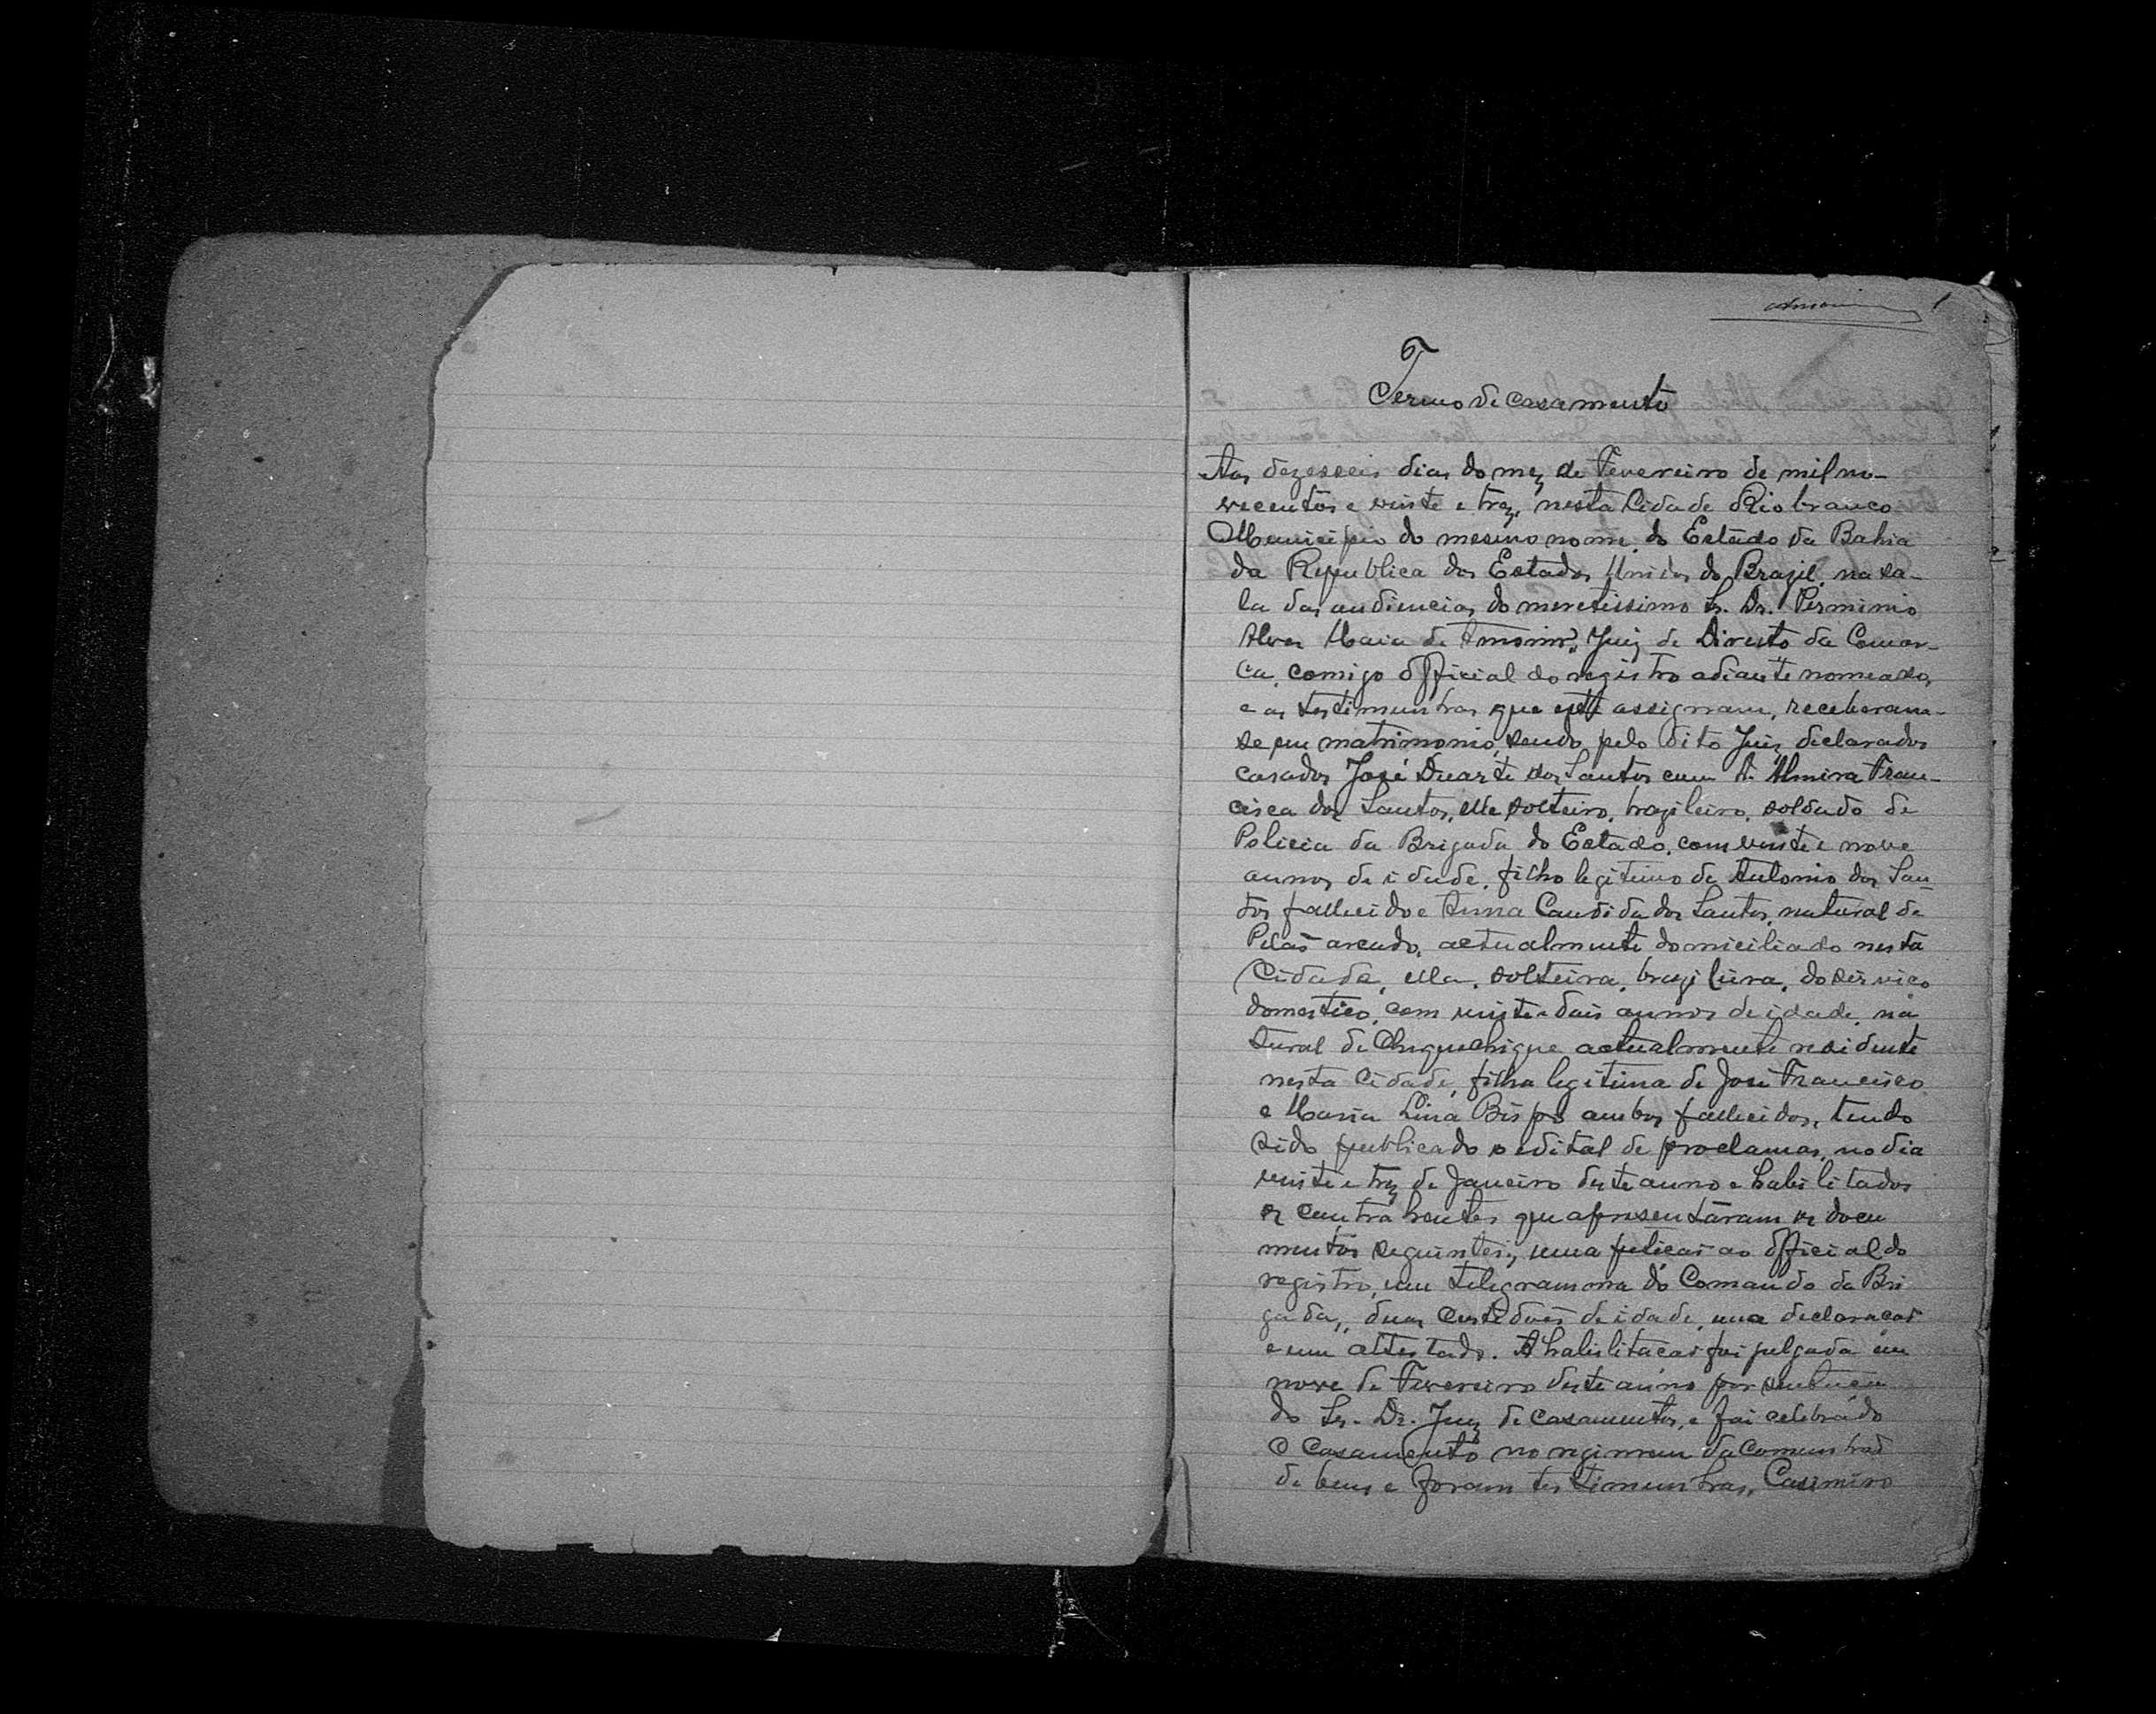 Amorim 1
Termo de casamento
Aos dezesseis dias do mez de Fevereiro de mil no-
vecentos e vinte e trez, nesta Cidade Rio branco
Municipio do mesmo nome, do Estado da Bahia
da Republica dos Estados Unidos do Brazil, na sa-
la das audiencias do meretissimo Sr. Dr. Perminio
Alves Maia de Amorim, Juiz de Direito da Comar-
ca, comigo official do registro adiante nomeado,
e as testimunhas que assignam, receberam-
se em matrimonio, sendo pelo dito Juiz declarados
casados José Duarte dos Santos com D. Almira Fran-
cisca dos Santos, elle solteiro, brazileiro, soldado de
Policia da Brigada do Estado, com vinte e nove
annos de idade, filho legitimo de Antonio dos San-
tos fallecido e Anna Candida dos Santos, natural de
Pilão arcado, actualmente domiciliado nesta
Cidade, ella, solteira, brazileira, do serviço
domestico, com vinte e dois annos de idade, na
tural de Chiquechique actualmente residente
nesta Cidade, filha legitima de José Francisco
e Maria Lina Bispo ambos fallecidos, tendo
sido publicado o edital de proclamas, no dia
vinte e trez de Janeiro deste anno e habilitados
os contrahentes que apresentáram os docu
mentos seguintes; uma petição ao official do
registro, um telegramma do Comando da Bri
gada, duas certidões de idade, uma declaração
e um attestado. A habilitação foi julgada em
nove de Fevereiro deste anno por sentença
do Sr. Dr. Juiz de casamentos, e foi celebrádo
o casamento no regimem da Comunhaõ
de bens e foram testimunhas, Casimiro